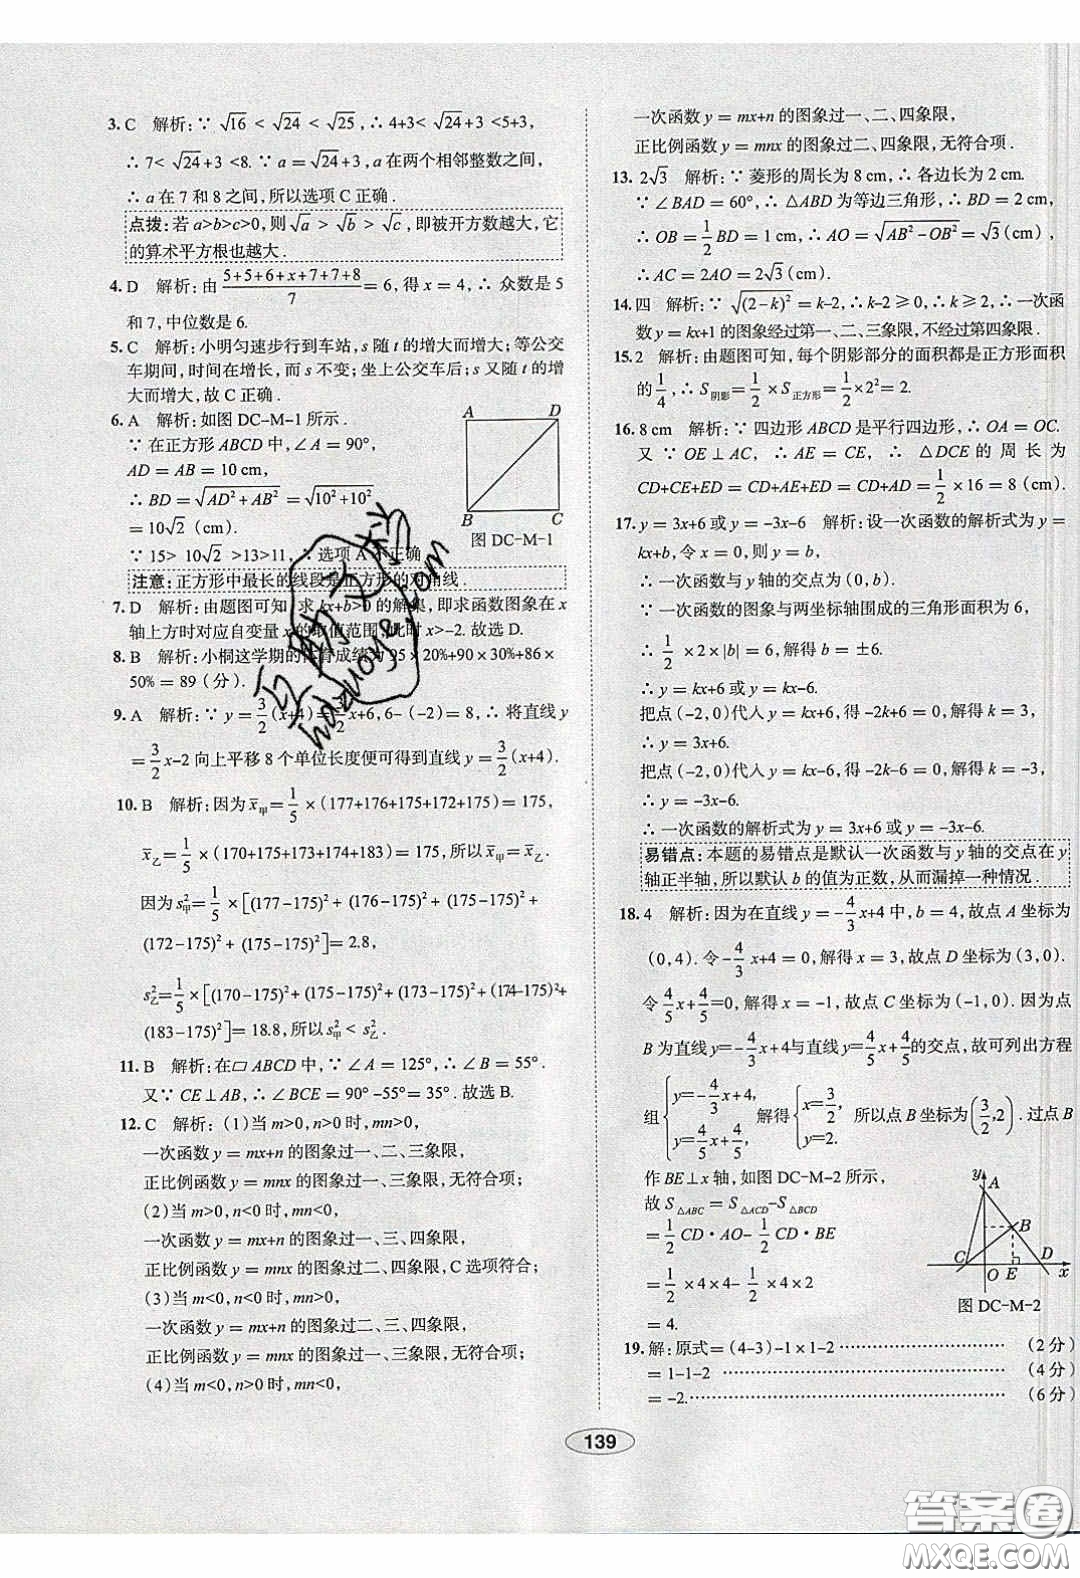 3. C 解析:∵ √16 < √24 < √25 ,∴ 4+3< √24+3 <5+3,
∴ 7< √24+3 <8. ∵ a = √24+3 ,a 在两个相邻整数之间,
∴ a 在 7 和 8 之间,所以选项 C 正确.
点拨:若 a>b>c>0,则 √a > √b > √c ,即被开方数越大,它
的算术平方根也越大.
4. D 解析:由 (5+5+6+x+7+7+8)/7 = 6,得 x = 4,∴ 众数是 5
和 7,中位数是 6.
5. C 解析:小明匀速步行到车站,s 随 t 的增大而增大;等公交
车期间,时间在增长,而 s 不变;坐上公交车后;s 又随 t 的增
大而增大,故 C 正确.
6. A 解析:如图 DC-M-1 所示.
∵ 在正方形 ABCD 中,∠A = 90°,
AD = AB = 10 cm,
∴ BD = √(AD²+AB²) = √(10²+10²)
= 10√2 (cm).
∵ 15> 10√2 >13>11,∵选项 A 不正确
A D
B C
图 DC-M-1
注意:正方形中最长的线段是正方形的对角线.
7. D 解析:由题图可知 求 kx+b>0 的解集,即求函数图象在 x
轴上方时对应自变量 x 的取值范围,此时 x>-2.故选 D.
8. B 解析:小桐这学期的体育成绩为 95×20%+90×30%+86×
50% = 89(分).
9. A 解析:∵ y = 3/2 (x+4) = 3/2 x+6,6-(-2)= 8,∴ 将直线 y
= 3/2 x-2 向上平移 8 个单位长度便可得到直线 y = 3/2 (x+4).
10. B 解析:因为 x̄甲 = 1/5 ×(177+176+175+172+175)= 175,
x̄乙 = 1/5 ×(170+175+173+174+183)= 175,所以 x̄甲 = x̄乙.
因为 s²甲 = 1/5 ×[(177-175)²+(176-175)²+(175-175)²+
(172-175)²+(175-175)²]= 2.8,
s²乙 = 1/5 ×[(170-175)²+(175-175)²+(173-175)²+(174-175)²+
(183-175)²]= 18.8,所以 s²甲 < s²乙.
11. B 解析:在▱ABCD 中,∵ ∠A = 125°,∴ ∠B = 55°.
又∵ CE⊥AB,∴ ∠BCE = 90°-55°= 35°. 故选 B.
12. C 解析:(1)当 m>0,n>0 时,mn>0,
一次函数 y = mx+n 的图象过一、二、三象限,
正比例函数 y = mnx 的图象过一、三象限,无符合项;
(2)当 m>0,n<0 时,mn<0,
一次函数 y = mx+n 的图象过一、三、四象限,
正比例函数 y = mnx 的图象过二、四象限,C 选项符合;
(3)当 m<0,n<0 时,mn>0,
一次函数 y = mx+n 的图象过二、三、四象限,
正比例函数 y = mnx 的图象过一、三象限,无符合项;
(4)当 m<0,n>0 时,mn<0,
一次函数 y = mx+n 的图象过一、二、四象限,
正比例函数 y = mnx 的图象过二、四象限,无符合项.
13. 2√3 解析:∵ 菱形的周长为 8 cm,∴ 各边长为 2 cm.
∵ ∠BAD = 60°,∴ △ABD 为等边三角形,∴ BD = 2 cm,
∴ OB = 1/2 BD = 1(cm),∴ AO = √(AB²-OB²) = √3 (cm),
∴ AC = 2AO = 2√3 (cm).
14. 四 解析:∵ √((2-k)²) = k-2,∴ k-2≥0,∴ k≥2,∴ 一次函
数 y = kx+1 的图象经过第一、二、三象限,不经过第四象限.
15. 2 解析:由题图可知,每个阴影部分的面积都是正方形面积
的 1/4,∴ S阴影 = 1/2 × S正方形 = 1/2 ×2²= 2.
16. 8 cm 解析:∵ 四边形 ABCD 是平行四边形,∴ OA = OC.
又 ∵ OE⊥AC, ∴ AE = CE, ∴ △DCE 的 周 长 为
CD+CE+ED = CD+AE+ED = CD+AD = 1/2 ×16 = 8 (cm).
17. y = 3x+6 或 y = -3x-6 解析:设一次函数的解析式为 y =
kx+b,令 x = 0,则 y = b,
∴ 一次函数与 y 轴的交点为(0,b).
∵ 一次函数的图象与两坐标轴围成的三角形面积为 6,
∴ 1/2 ×2×|b| = 6,解得 b = ±6.
∴ y = kx+6 或 y = kx-6.
把点(-2,0)代入 y = kx+6,得 -2k+6 = 0,解得 k = 3,
∴ y = 3x+6.
把点(-2,0)代入 y = kx-6,得 -2k-6 = 0,解得 k = -3,
∴ y = -3x-6.
∴ 一次函数的解析式为 y = 3x+6 或 y = -3x-6.
易错点:本题的易错点是默认一次函数与 y 轴的交点在 y
轴正半轴,所以默认 b 的值为正数,从而漏掉一种情况.
18. 4 解析:因为在直线 y = -4/3 x+4 中,b = 4,故点 A 坐标为
(0,4). 令-4/3 x+4 = 0,解得 x = 3,故点 D 坐标为(3,0).
令 4/5 x+4/5=0,解得 x = -1,故点 C 坐标为(-1,0). 因为点
B 为直线 y=-4/3 x+4与直线 y=4/5 x+4/5 的交点,故可列出方程
组 { y=-4/3 x+4, y=4/5 x+4/5, 解得 { x=3/2, y=2. 所以点 B 坐标为(3/2,2). 过点 B
作 BE⊥x 轴,如图 DC-M-2 所示,
故 S△ABC = S△ACD-S△BCD
= 1/2 CD·AO- 1/2 CD·BE
= 1/2 ×4×4- 1/2 ×4×2
= 4.
y A B C O E D x
图 DC-M-2
19. 解:原式=(4-3)-1×1-2 ………………………… (2 分)
= 1-1-2 ………………………… (4 分)
= -2. ………………………… (6 分)
139
作业帮
hazuoye.com
答案卷
MXQE.COM